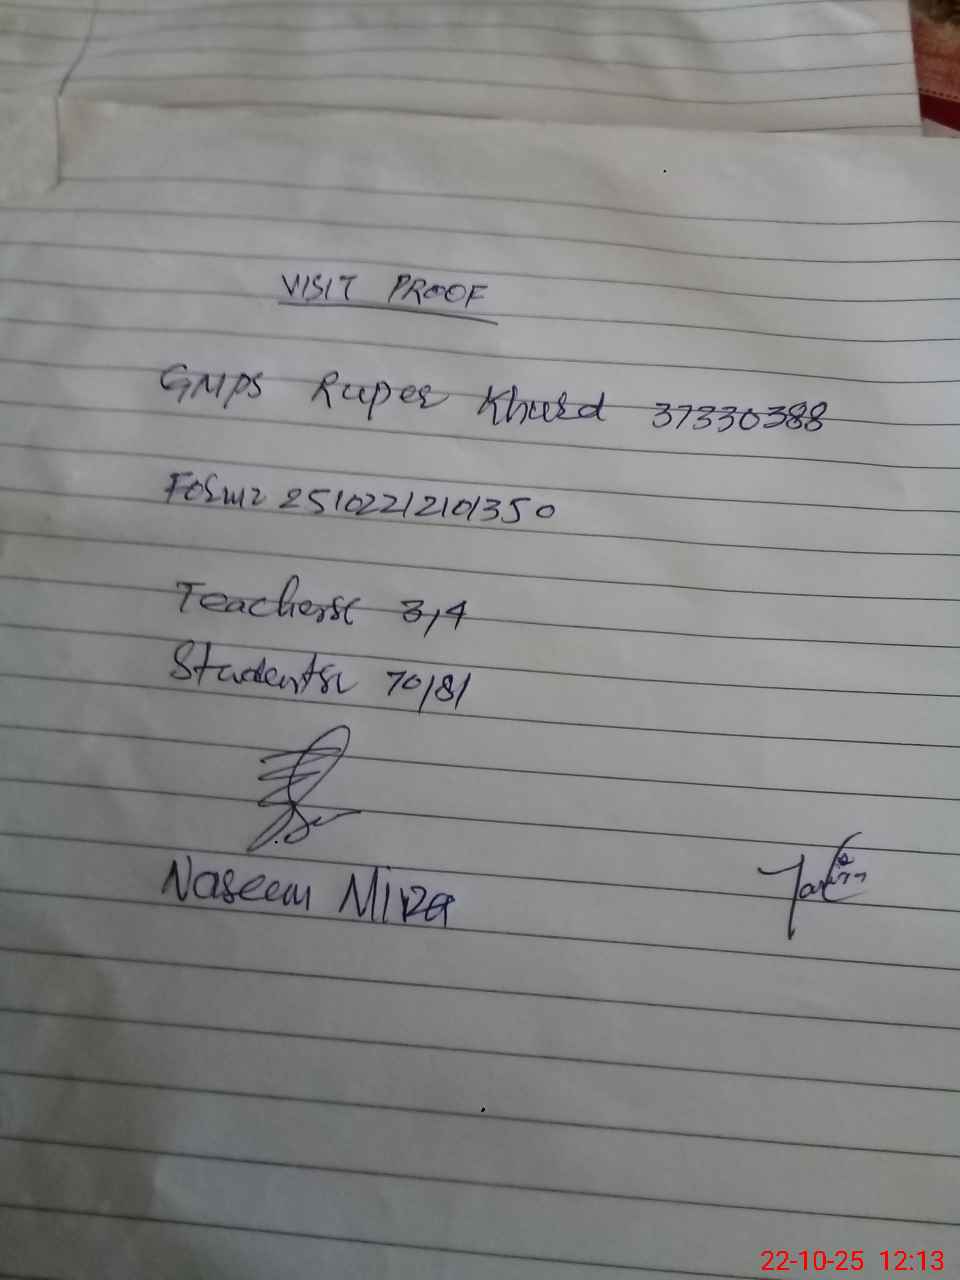 VISIT PROOF
GMPS Ruper Khurd 37330388
Form: 25102212101350
Teachers: 3,4
Students: 70/81
Naseem Mirza
22-10-25 12:13